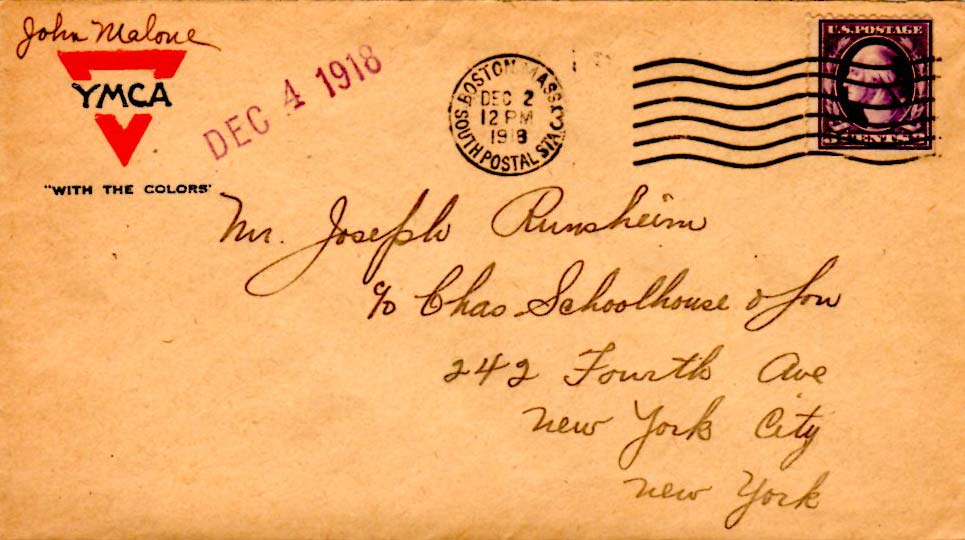 John Malone
YMCA
"WITH THE COLORS"
DEC 4 1918
BOSTON, MASS.
DEC 2
12 PM
1918
SOUTH POSTAL STA.
U.S. POSTAGE
CENTS
Mr. Joseph Runsheim
c/o Chas Schoolhouse & Son
242 Fourth Ave
New York City
New York